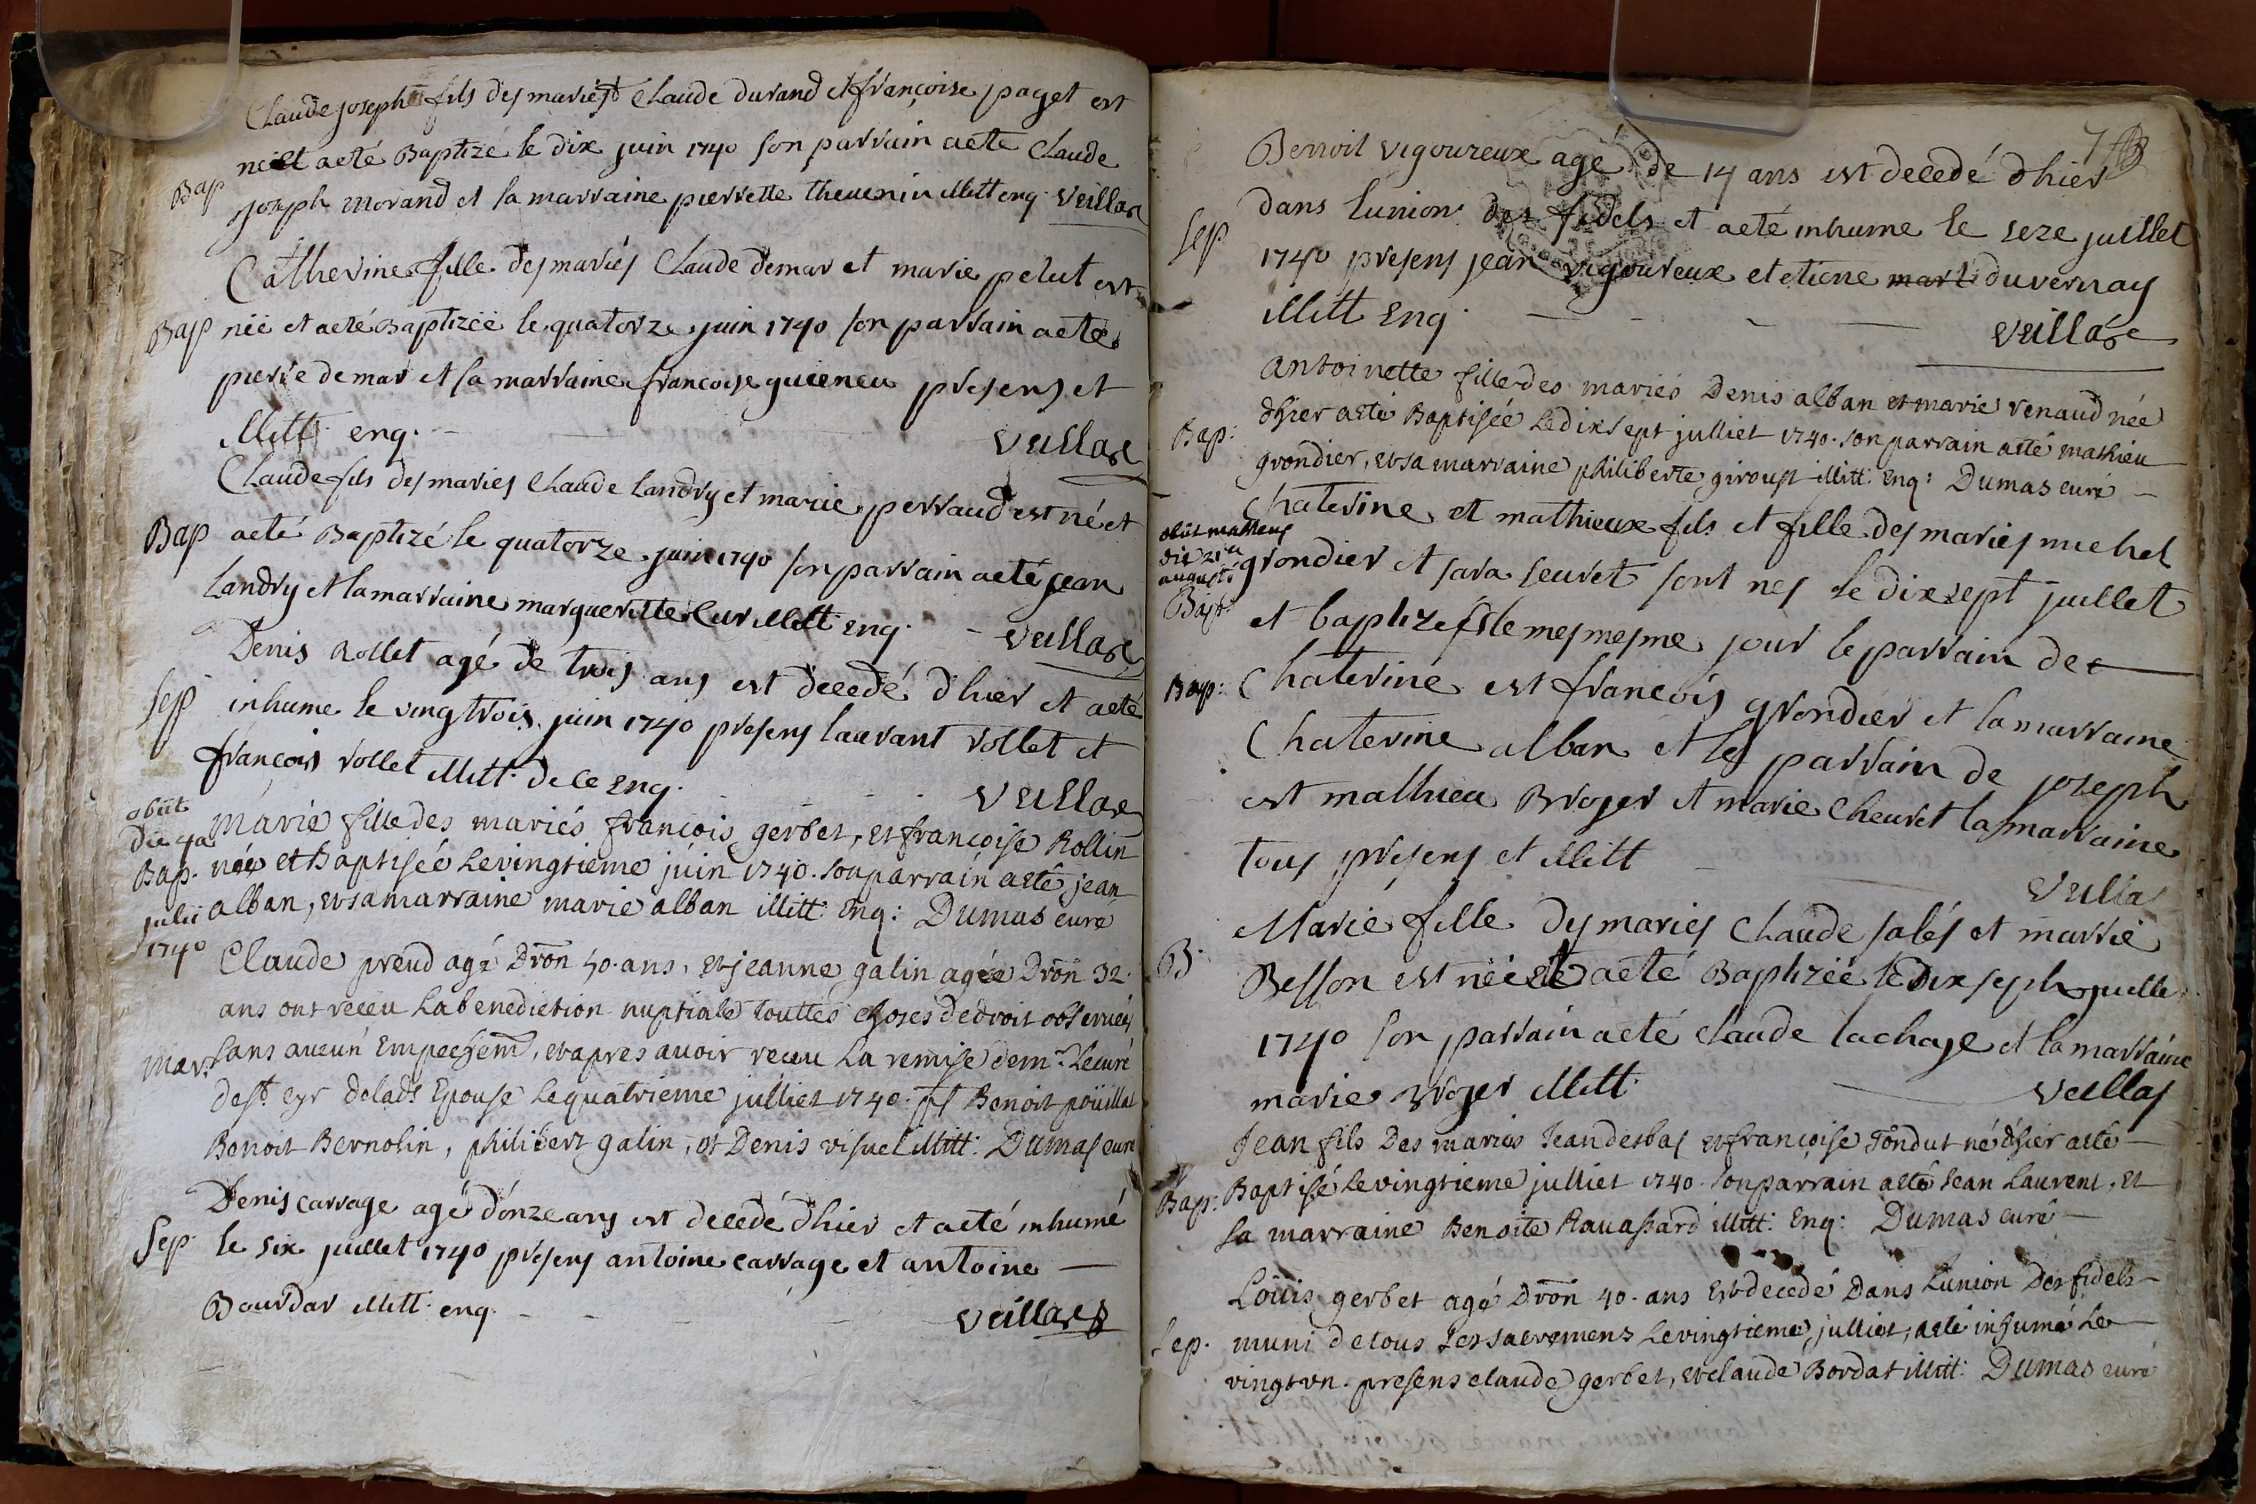 Claude joseph fils des mariés Claude durand et françoise paget est
né et aeté Baptizé le dix juin 1740 son parrain aeté Claude
Bap
joseph morand et sa marraine pierrette thevenin illitt enq. veillas
Catherine fille des mariés Claude demar et marie pelut est
Bap née et aeté Baptizéé le quatorze juin 1740 son parrain aeté
pierre demar et sa marraine françoise guieneu presens et
illitt enq. veillas
Claude fils des mariés Claude landry et marie perraud est né et
Bap aeté Baptizé le quatorze juin 1740 son parrain aeté jean
landry et la marraine margueritte illitt enq. veillas
Denis Rollet agé de trois ans est decedé d'hier et aeté
Sep inhume le vingtrois juin 1740 presens laurant rollet et
françois rollet illitt. de ce enq. veillas
obiit
die 4a
Marie fille des mariés françois gerbet, et françoise Rollin
Bap. née et Baptisée le vingtieme juin 1740. son parrain aeté jean
julii alban, et sa marraine marie alban illitt. Enq: Dumas curé
1740
Claude preud agé Dron 50. ans, et jeanne galin agée Dron 32.
ans ont receu la benediction nuptiale touttes choses de droit observées
Mar. sans aucun Empechemt, et apres avoir receu la remise de mr. Le curé
de st. cyr de lade Epouse le quatrieme julliet 1740. pt Benoit poüillat
Benoit Bernolin, philibert galin, et Denis visuel illitt. Dumas curé
Denis carrage agé d'onze ans est decedé d'hier et aeté inhumé
Sep. le six juillet 1740 presens antoine carrage et antoine
Bourdar illitt. enq. veillas
Benoit vigoureux agé de 14 ans est decedé d'hier
dans lunion des fidels et aeté inhume le seze juillet
Sep
1740 presens jean vigoureux et etiene mart duvernay
illitt enq. veillas
antoinette fille des mariés Denis alban et marie renaud née
Bap: d'hier aeté Baptisée le dix sept julliet 1740. son parrain aeté mathieu
grondier, et sa marraine philiberte giroust illitt. Enq: Dumas curé
Chaterine et mathieux fils et fille des mariés michel
obiit matheus
die 21a
augusti
grondier et sara seuret sont nes le dix sept juillet
Bapt.
et baptizés le mesmesme jour le parrain de
Bap: Chaterine est françois grondier et la marraine
Chaterine alban et le parrain de joseph
est mathieu Broyer et marie Cheuret la marraine
tous presens et illitt veillas
Marie fille des mariés Claude salés et marrie
B. Besson est née et aeté Baptizéé le dix sept juillet
1740 son parrain aeté claude lachaze et la marraine
marie Broyer illitt. veillas
Jean fils Des mariés Jean desbas et françoise Tondut né d'hier aeté
Bap: Baptisé le vingtieme julliet 1740. son parrain aeté Jean Laurent, et
sa marraine Benoite Ravassard illitt. Enq: Dumas curé
Loüis gerbet agé Dron 40. ans Est decedé Dans Lunion Des fidels
Sep. muni de tous les sacremens le vingtieme julliet, aeté inhumé le
vingt un. presens claude gerbet, et claude Bordat illitt: Dumas curé